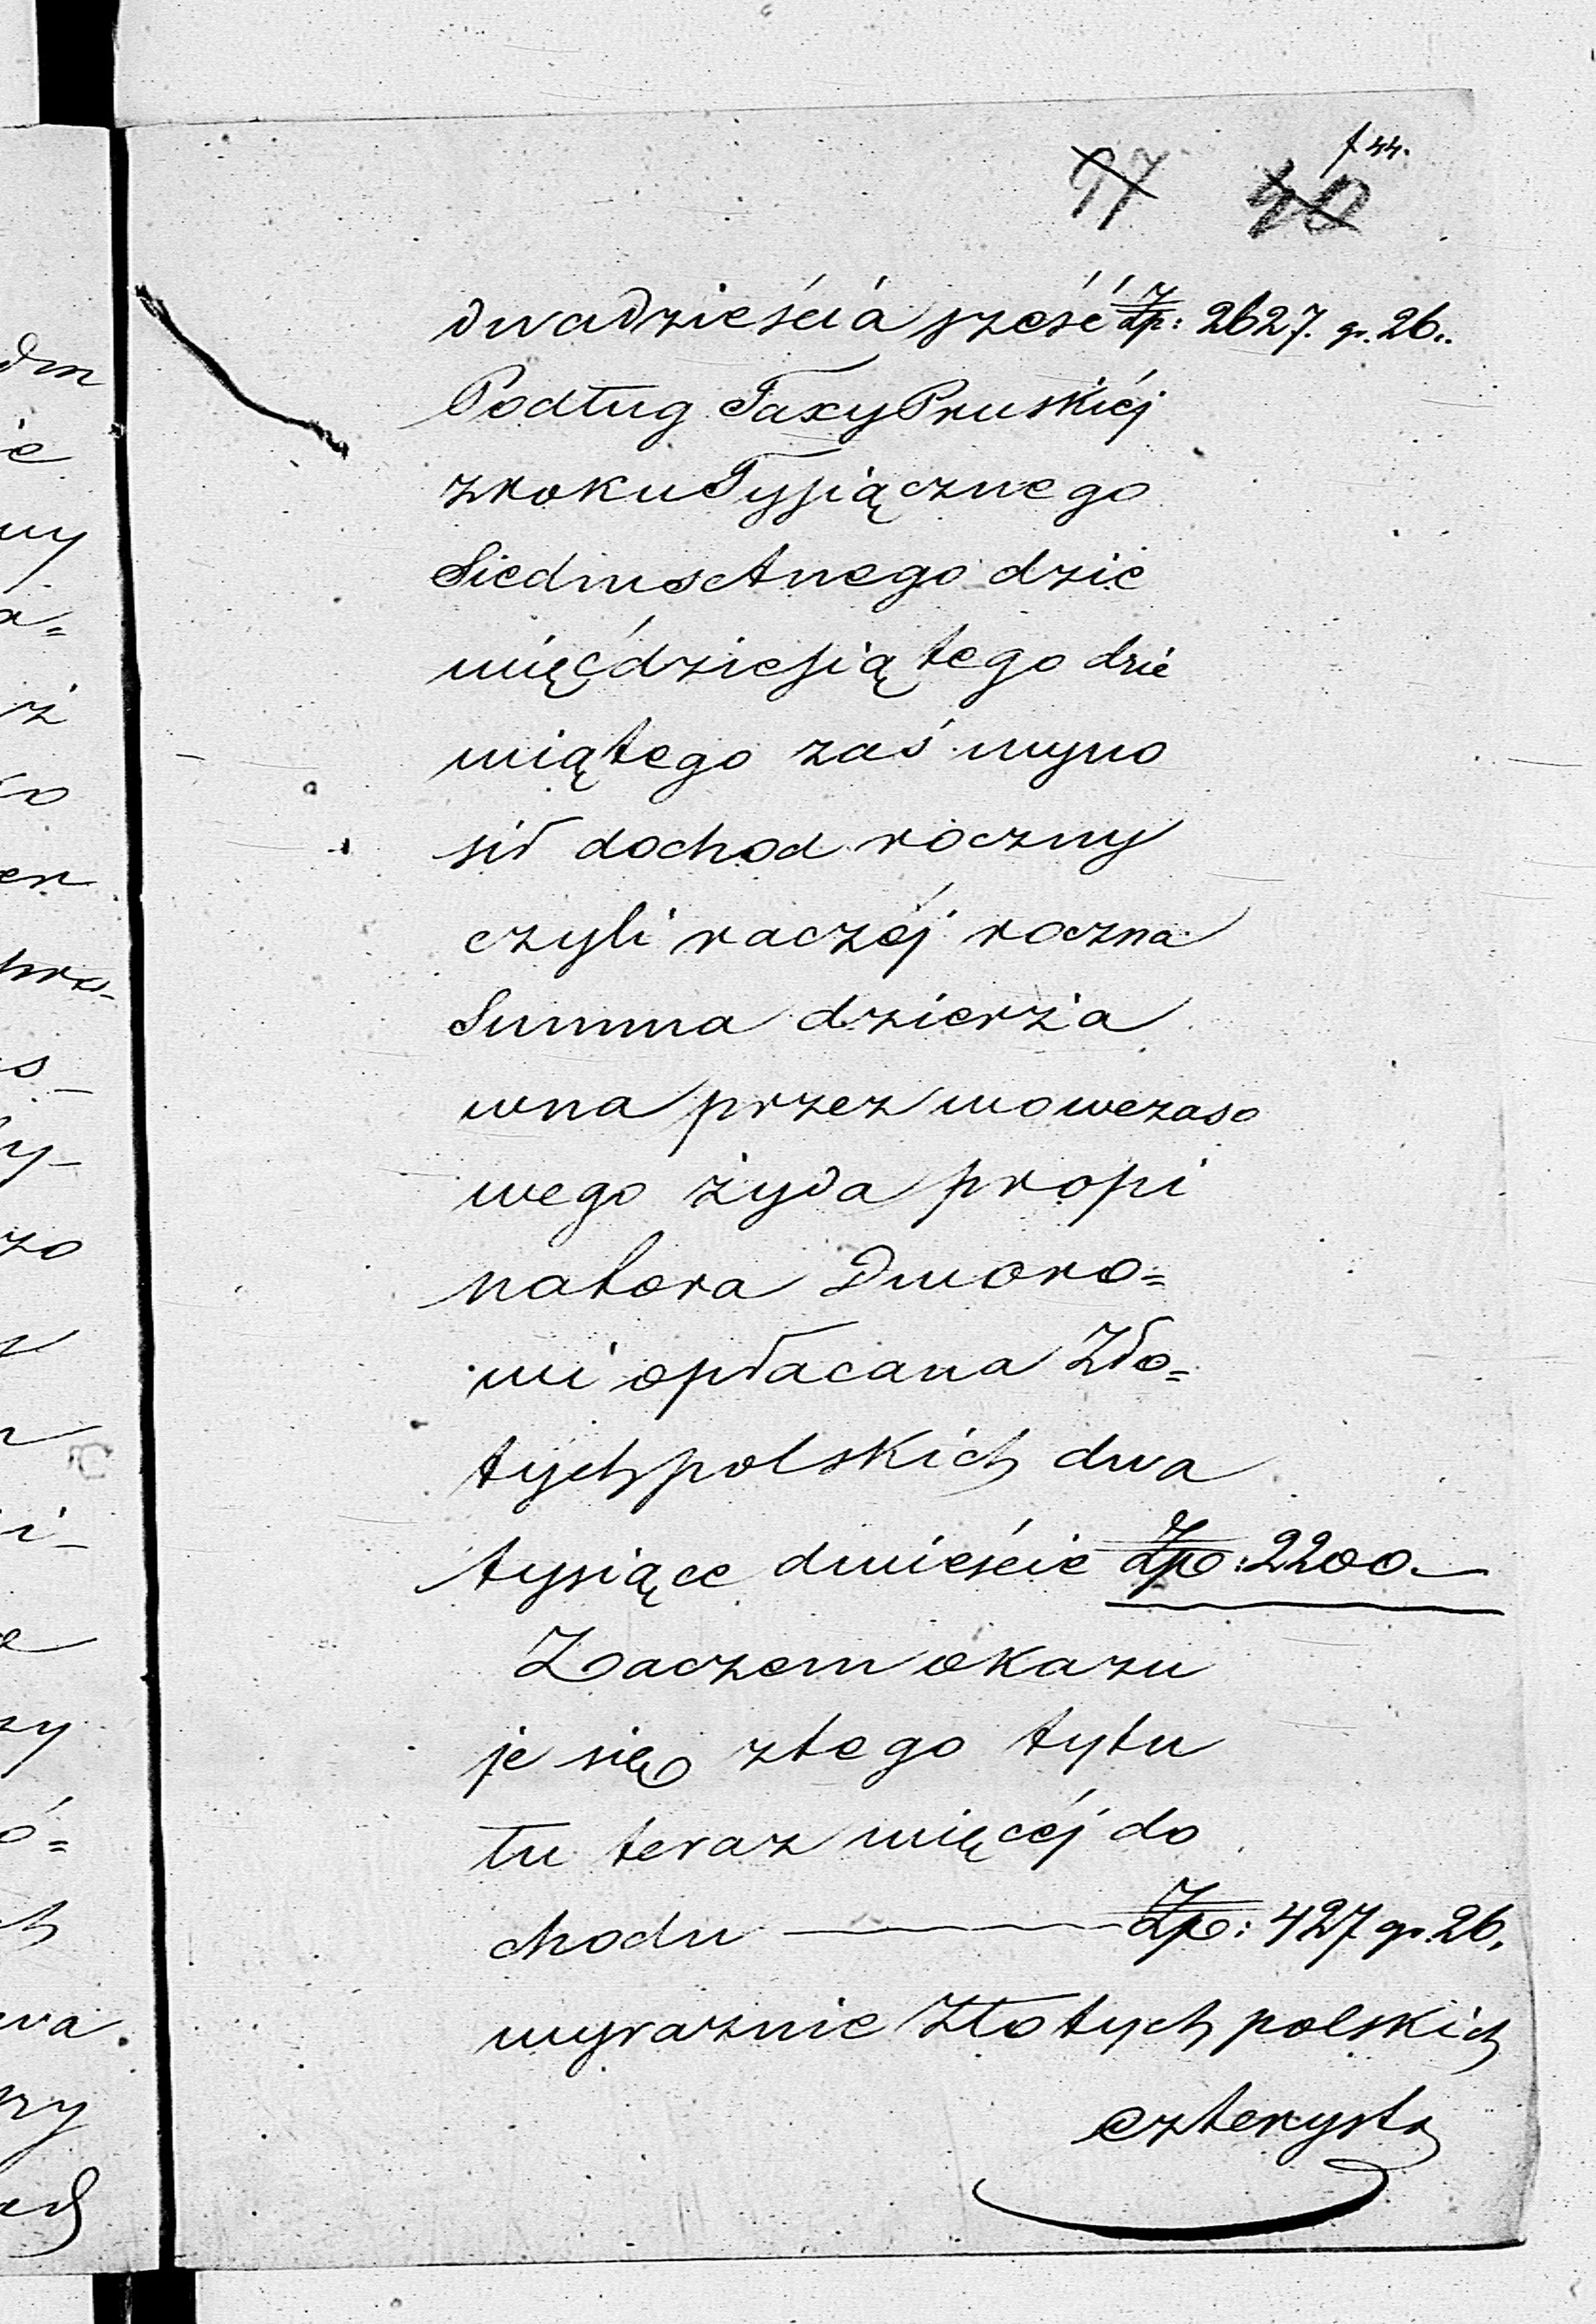 f 44.
97 40
dwadzieścia sześć Zp: 2627. gr. 26..
Podług Taxy Pruskiéj
z roku Tysiącznego
Siedmsetnego dzie
więćdziesiątego dzie
wiątego zaś wyno
sił dochod roczny
czyli raczéj roczna
Summa dzierża
wna przez wowczaso
wego żyda propi
natora Dworo=
wi opłacana Zło=
tych polskich dwa
tysiące dwieście Zp: 2200.—
Zaczem okazu
je się z tego tytu
łu teraz więcéj do
chodu — Zp: 427 gr. 26.
wyraznie Złotych polskich
czterysta